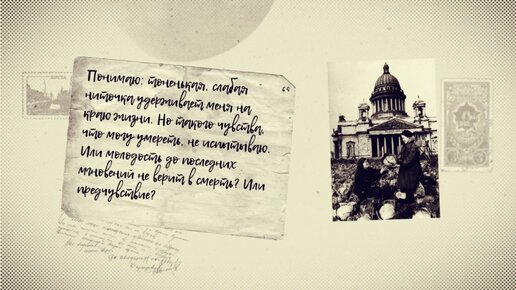 Понимаю: тоненькая, слабая
ниточка удерживает меня на
краю жизни. Но такого чувства,
что могу умереть, не испытываю.
Или молодость до последних
мгновений не верит в смерть? Или
предчувствие?